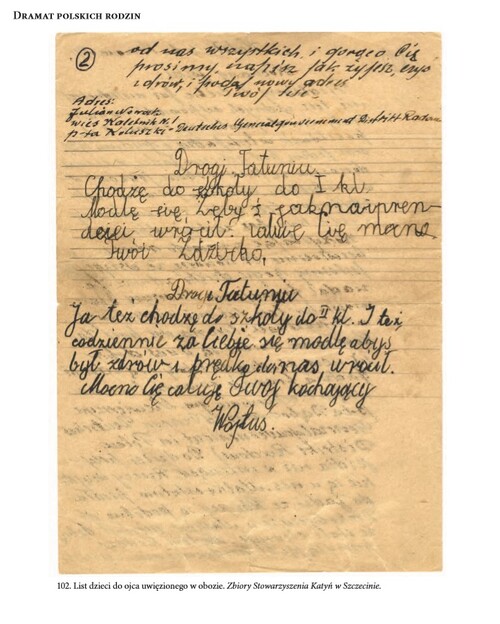 DRAMAT POLSKICH RODZIN
2
od nas wszystkich i gorąco Cię
prosimy, napisz jak żyjesz, czyś
zdrów, i podaj nowy adres
Twój
Adres:
Julian Nowak
wieś Kaletnik N. 1
p-ta Koluszki - Deutsches Generalgouvernement Distrikt Radom
Drogi Tatuniu
Chodzę do szkoły do I kl.
Modlę się żebyś jaknajpren-
dzej wrócił. Całuję Cię mocno
Twój Zdzicho,
Drogi Tatuniu
Ja też chodzę do szkoły do II kl. I też
codziennie za Ciebje się modlę abyś
był zdrów i prędko do nas wrócił.
Mocno Cię całuję Twoj kochający
Wojtuś.
102. List dzieci do ojca uwięzionego w obozie. Zbiory Stowarzyszenia Katyń w Szczecinie.